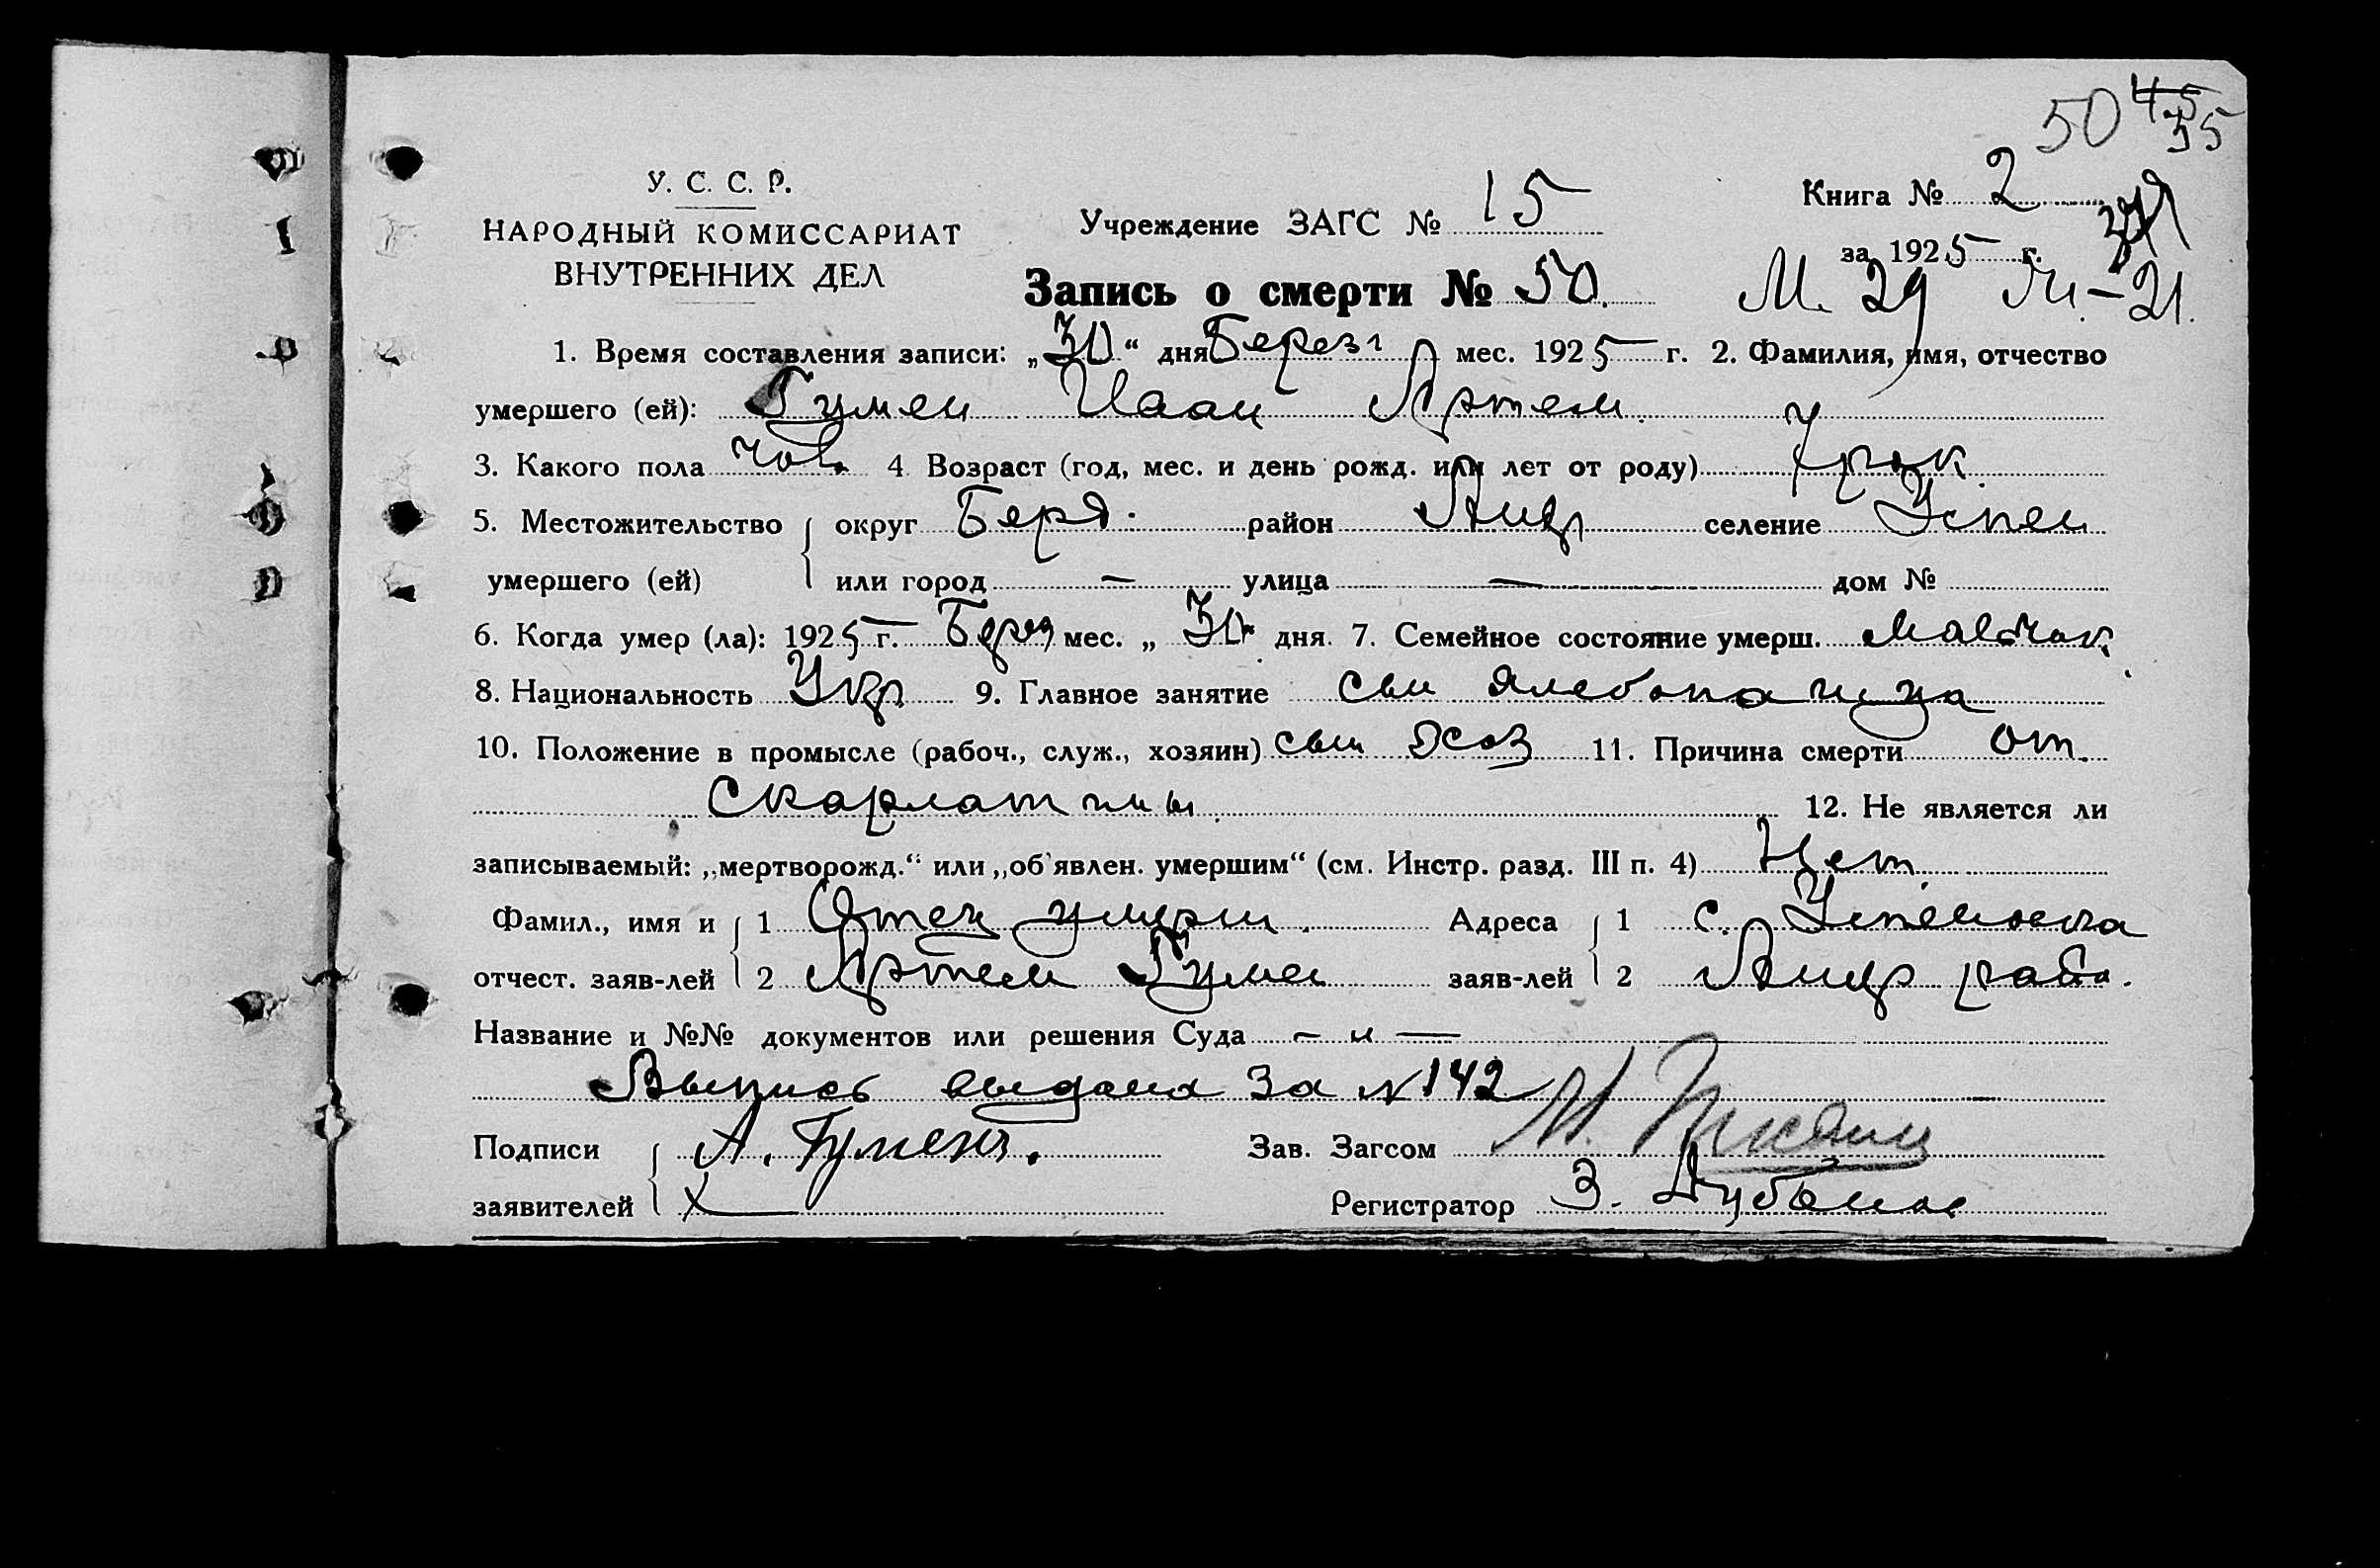 50 45 35
У. С. С. Р.
НАРОДНЫЙ КОМИССАРИАТ
ВНУТРЕННИХ ДЕЛ
Учреждение ЗАГС № 15
Книга № 2
за 1925 г.
Запись о смерти № 50.
М. 29 21.
1. Время составления записи: „30“ дня Березн мес. 1925 г. 2. Фамилия, имя, отчество
умершего (ей): Гумен Иван Артем.
3. Какого пола чов. 4 Возраст (год, мес. и день рожд. или лет от роду)
5. Местожительство округ Берд. район Андр селение Успен
умершего (ей) или город — улица — дом №
6. Когда умер (ла): 1925 г. Берез мес. „ 30 дня. 7. Семейное состояние умерш.
8. Национальность Укр 9. Главное занятие сын хлебопашца
10. Положение в промысле (рабоч., служ., хозяин) сын хоз 11. Причина смерти от
Скарлатины 12. Не является ли
записываемый: „мертворожд.“ или „об'явлен. умершим“ (см. Инстр. разд. III п. 4) Нет
Фамил., имя и 1 Отец умерш. Адреса 1 с. Успеновка
отчест. заяв-лей 2 Артем Гумен заяв-лей 2 Андр района.
Название и №№ документов или решения Суда — „ —
Выпись выдана за №142
Подписи А. Гумен. Зав. Загсом М.
заявителей Регистратор З.